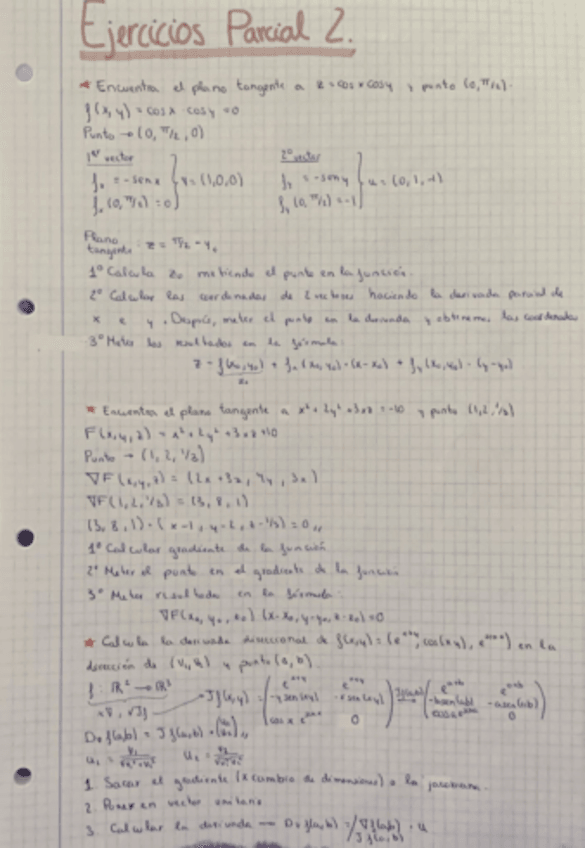 Ejercicios Parcial 2.
* Encuentra el plano tangente a z = cos x cos y y punto (0, π/2).
f(x,y) = cos x cos y = 0
Punto → (0, π/2, 0)
1er vector
2º vector
fx = -sen x
fx (0, π/2) = 0
v = (1,0,0)
fy = -sen y
fy (0, π/2) = -1
u = (0,1,-1)
Plano tangente : z = π/2 - y
1º Calcula z0 metiendo el punto en la función.
2º Calcular las coordenadas de 2 vectores haciendo la derivada parcial de
x e y. Después, meter el punto en la derivada y obtenemos las coordenadas
3º Meter los resultados en la fórmula:
z = f(x0,y0) + fx (x0,y0)·(x-x0) + fy (x0,y0)·(y-y0)
z0
* Encuentra el plano tangente a x² + 2y² + 3xz = -10 y punto (1,2,1/3)
F(x,y,z) = x² + 2y² + 3xz +10
Punto → (1, 2, 1/3)
∇F(x,y,z) = (2x+3z, 4y, 3x)
∇F(1,2,1/3) = (3, 8, 1)
(3, 8, 1)·(x-1, y-2, z-1/3) = 0 //
1º Calcular gradiente de la función
2º Meter el punto en el gradiente de la función
3º Meter resultado en la fórmula:
∇F(x0, y0, z0) (x-x0, y-y0, z-z0) = 0
* Calcula la derivada direccional de f(x,y) = (e^x+y, cos(xy), e^sen x) en la
dirección de (v1,v2) y punto (a,b)
f: ℝ² → ℝ³
Jf(x,y) = ( e^x+y e^x+y
-y sen(xy) -x sen(xy)
cos x e^sen x 0 )
Jf(a,b) → ( e^a+b e^a+b
-b sen(ab) -a sen(ab)
cos a e^sen a 0 )
Du f(a,b) = Jf(a,b) · (u1 u2) //
u1 = v1/√v1²+v2² u2 = v2/√v1²+v2²
1. Sacar el gradiente (x cambio de dimensiones) o la jacobiana.
2. Poner en vector unitario
3. Calcular la derivada → Du f(a,b) = ∇f(a,b) · u
Jf(a,b)